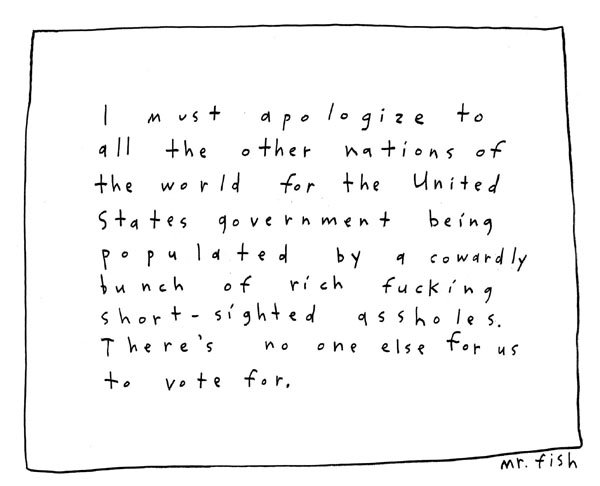 I must apologize to
all the other nations of
the world for the United
States government being
populated by a cowardly
bunch of rich fucking
short-sighted assholes.
There's no one else for us
to vote for.
mr. fish